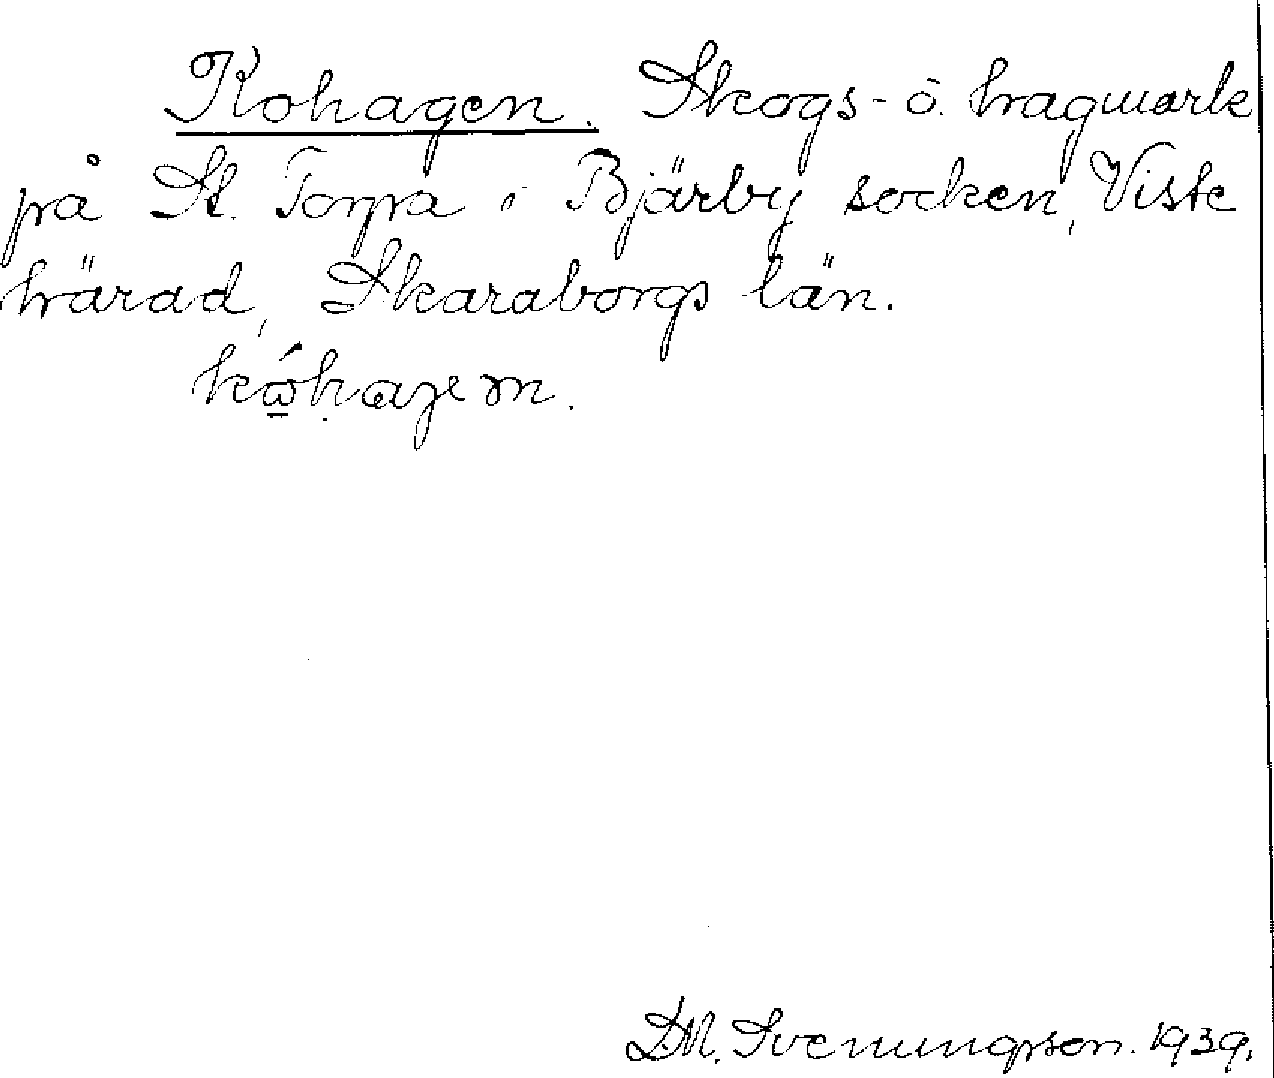 Kohagen. Skogs- o. hagmark
på St. Torpa i Bjärby socken, Viste
härad, Skaraborgs län.
D.M. Svenungsson. 1939.